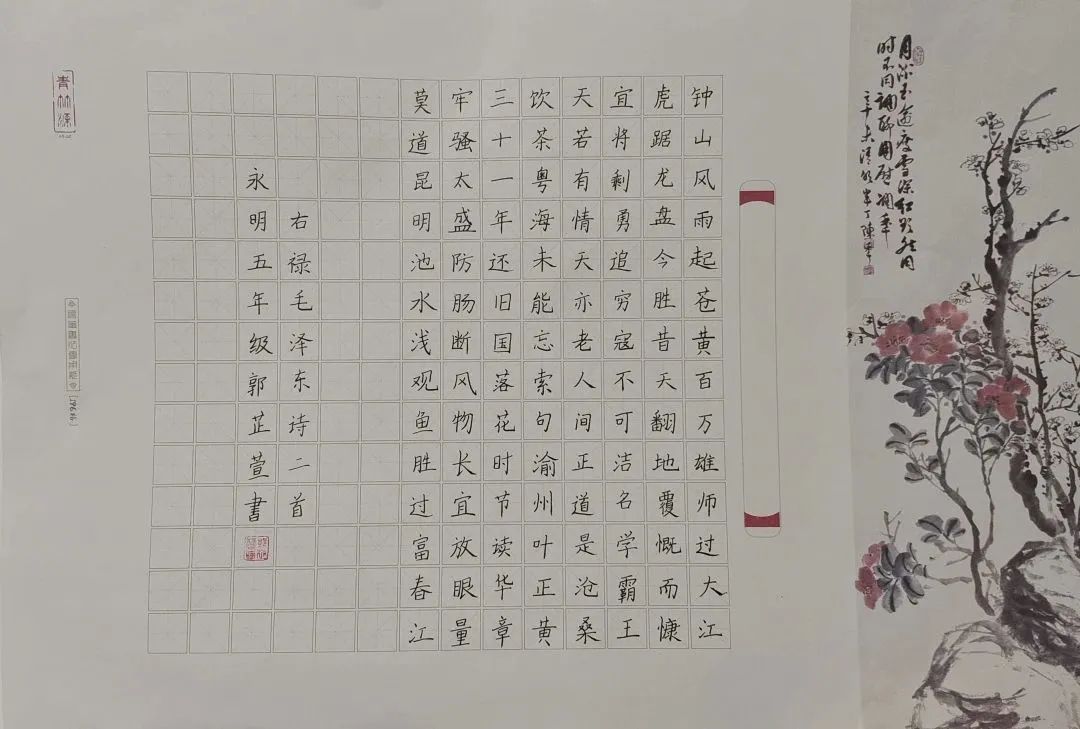 钟山风雨起苍黄百万雄师过大江
虎踞龙盘今胜昔天翻地覆慨而慷
宜将剩勇追穷寇不可洁名学霸王
天若有情天亦老人间正道是沧桑
饮茶粤海未能忘索句渝州叶正黄
三十一年还旧国落花时节读华章
牢骚太盛防肠断风物长宜放眼量
莫道昆明池水浅观鱼胜过富春江
右禄毛泽东诗二首
永明五年级郭芷萱書